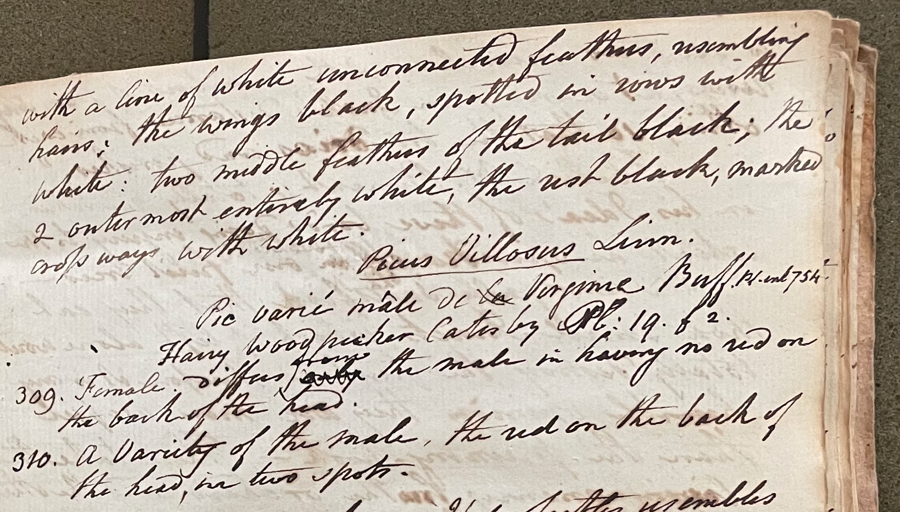 with a line of white unconnected feathers, resembling
hairs; the wings black, spotted in rows with
white: two middle feathers of the tail black; the
2 outermost entirely white, the rest black, marked
cross ways with white.
Picus Villosus Linn.
Pic varié mâle de la Virginie Buff. Pl. enl 754.
Hairy Woodpecker Catesby Pl: 19. f 2.
309. Female. differs from the male in having no red on
the back of the head.
310. A Variety of the male, the red on the back of
the head, in two spots.
resembles